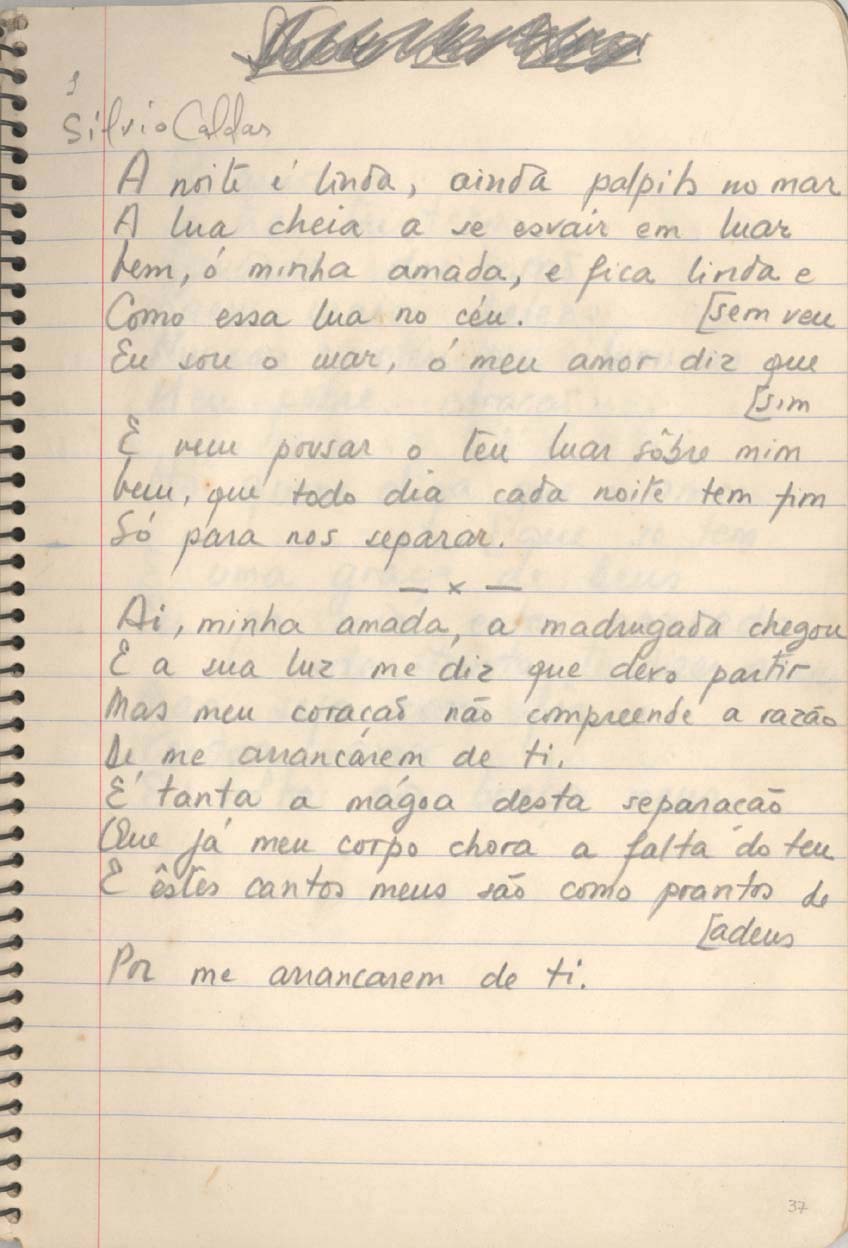 1
Silvio Caldas
A noite é linda, ainda palpita no mar
A lua cheia a se esvair em luar
Vem, ó minha amada, e fica linda e
Como essa lua no céu. [sem veu
Eu sou o mar, ó meu amor diz que
[sim
E vem pousar o teu luar sôbre mim
Vem, que todo dia cada noite tem fim
Só para nos separar.
— x —
Ai, minha amada, a madrugada chegou
E a sua luz me diz que devo partir
Mas meu coração não compreende a razão
De me arrancárem de ti.
É tanta a mágoa desta separação
Que já meu corpo chora a falta do teu
E êstes cantos meus são como prantos de
[adeus
Por me arrancarem de ti.
37